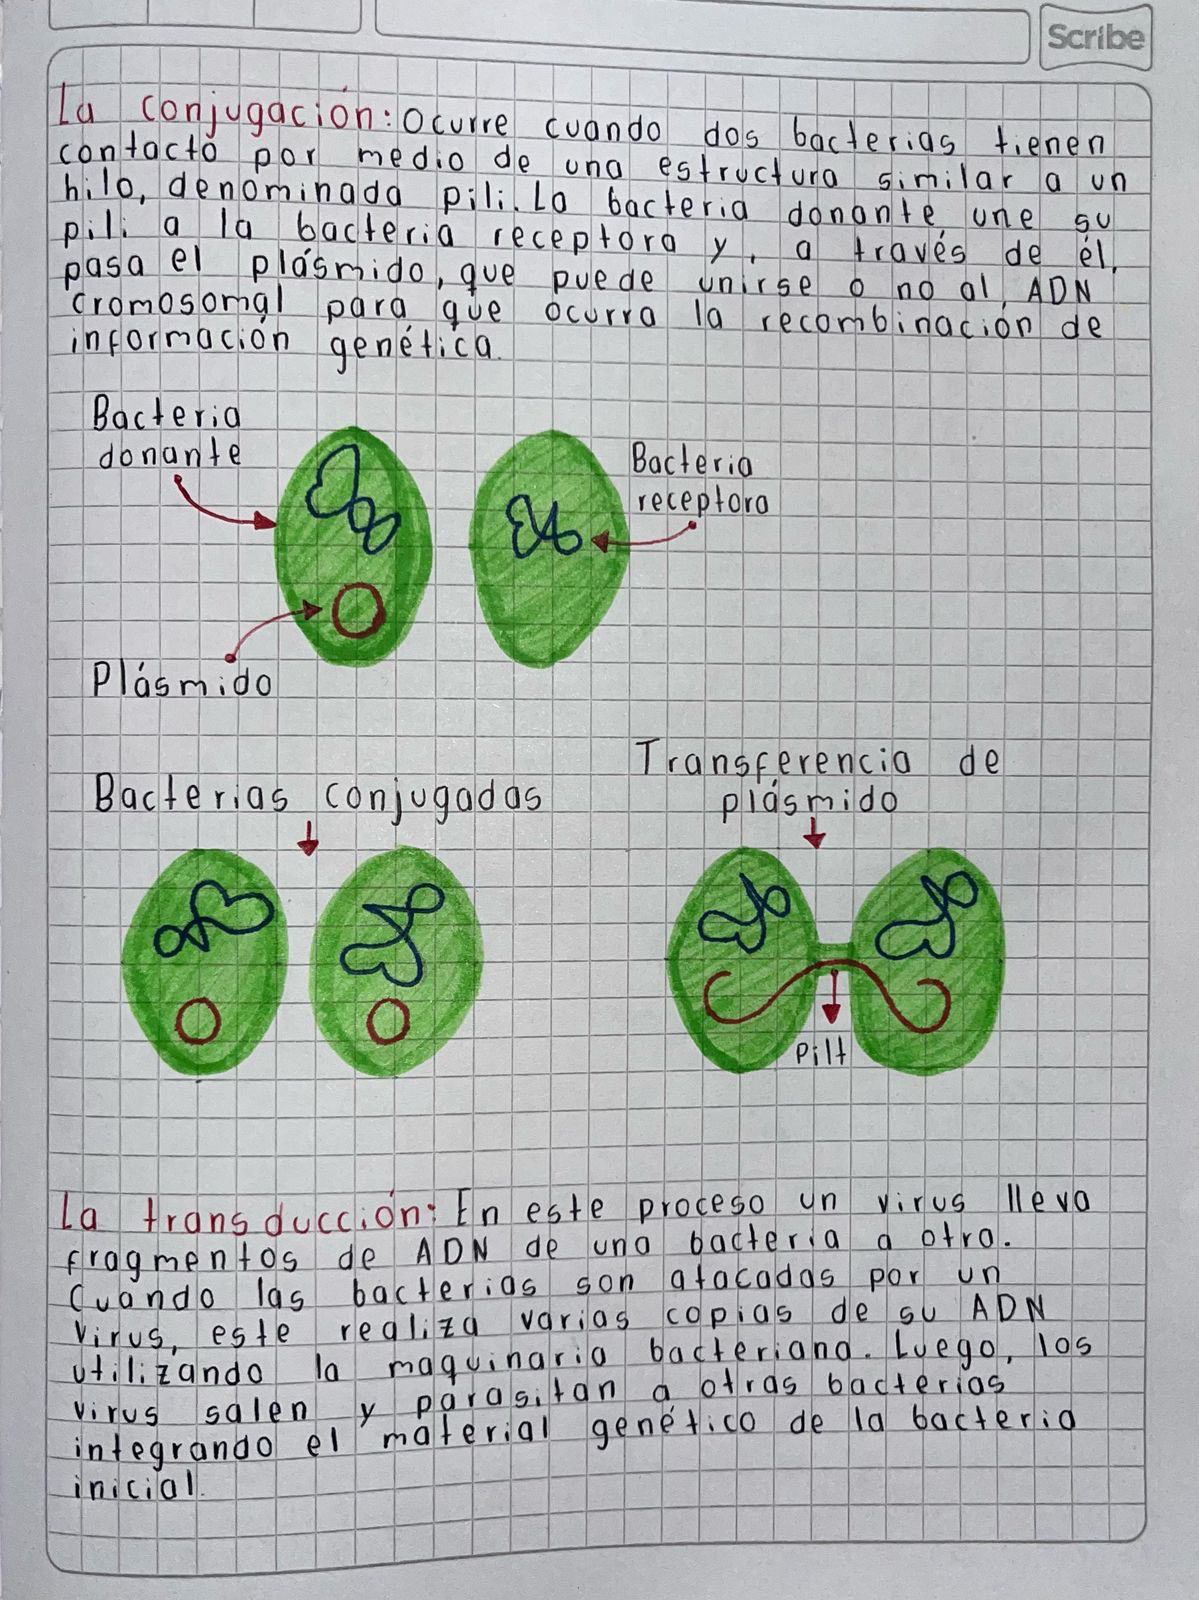 Scribe
La conjugación: Ocurre cuando dos bacterias tienen
contacto por medio de una estructura similar a un
hilo, denominada pili. La bacteria donante une su
pili a la bacteria receptora y, a través de él,
pasa el plásmido, que puede unirse o no al ADN
cromosomal para que ocurra la recombinación de
información genética.
Bacteria
donante
Bacteria
receptora
Plásmido
Transferencia de
plásmido
Bacterias conjugadas
Pili
La transducción: En este proceso un virus lleva
fragmentos de ADN de una bacteria a otra.
Cuando las bacterias son atacadas por un
virus, este realiza varias copias de su ADN
utilizando la maquinaria bacteriana. Luego, los
virus salen y parasitan a otras bacterias
integrando el material genético de la bacteria
inicial.